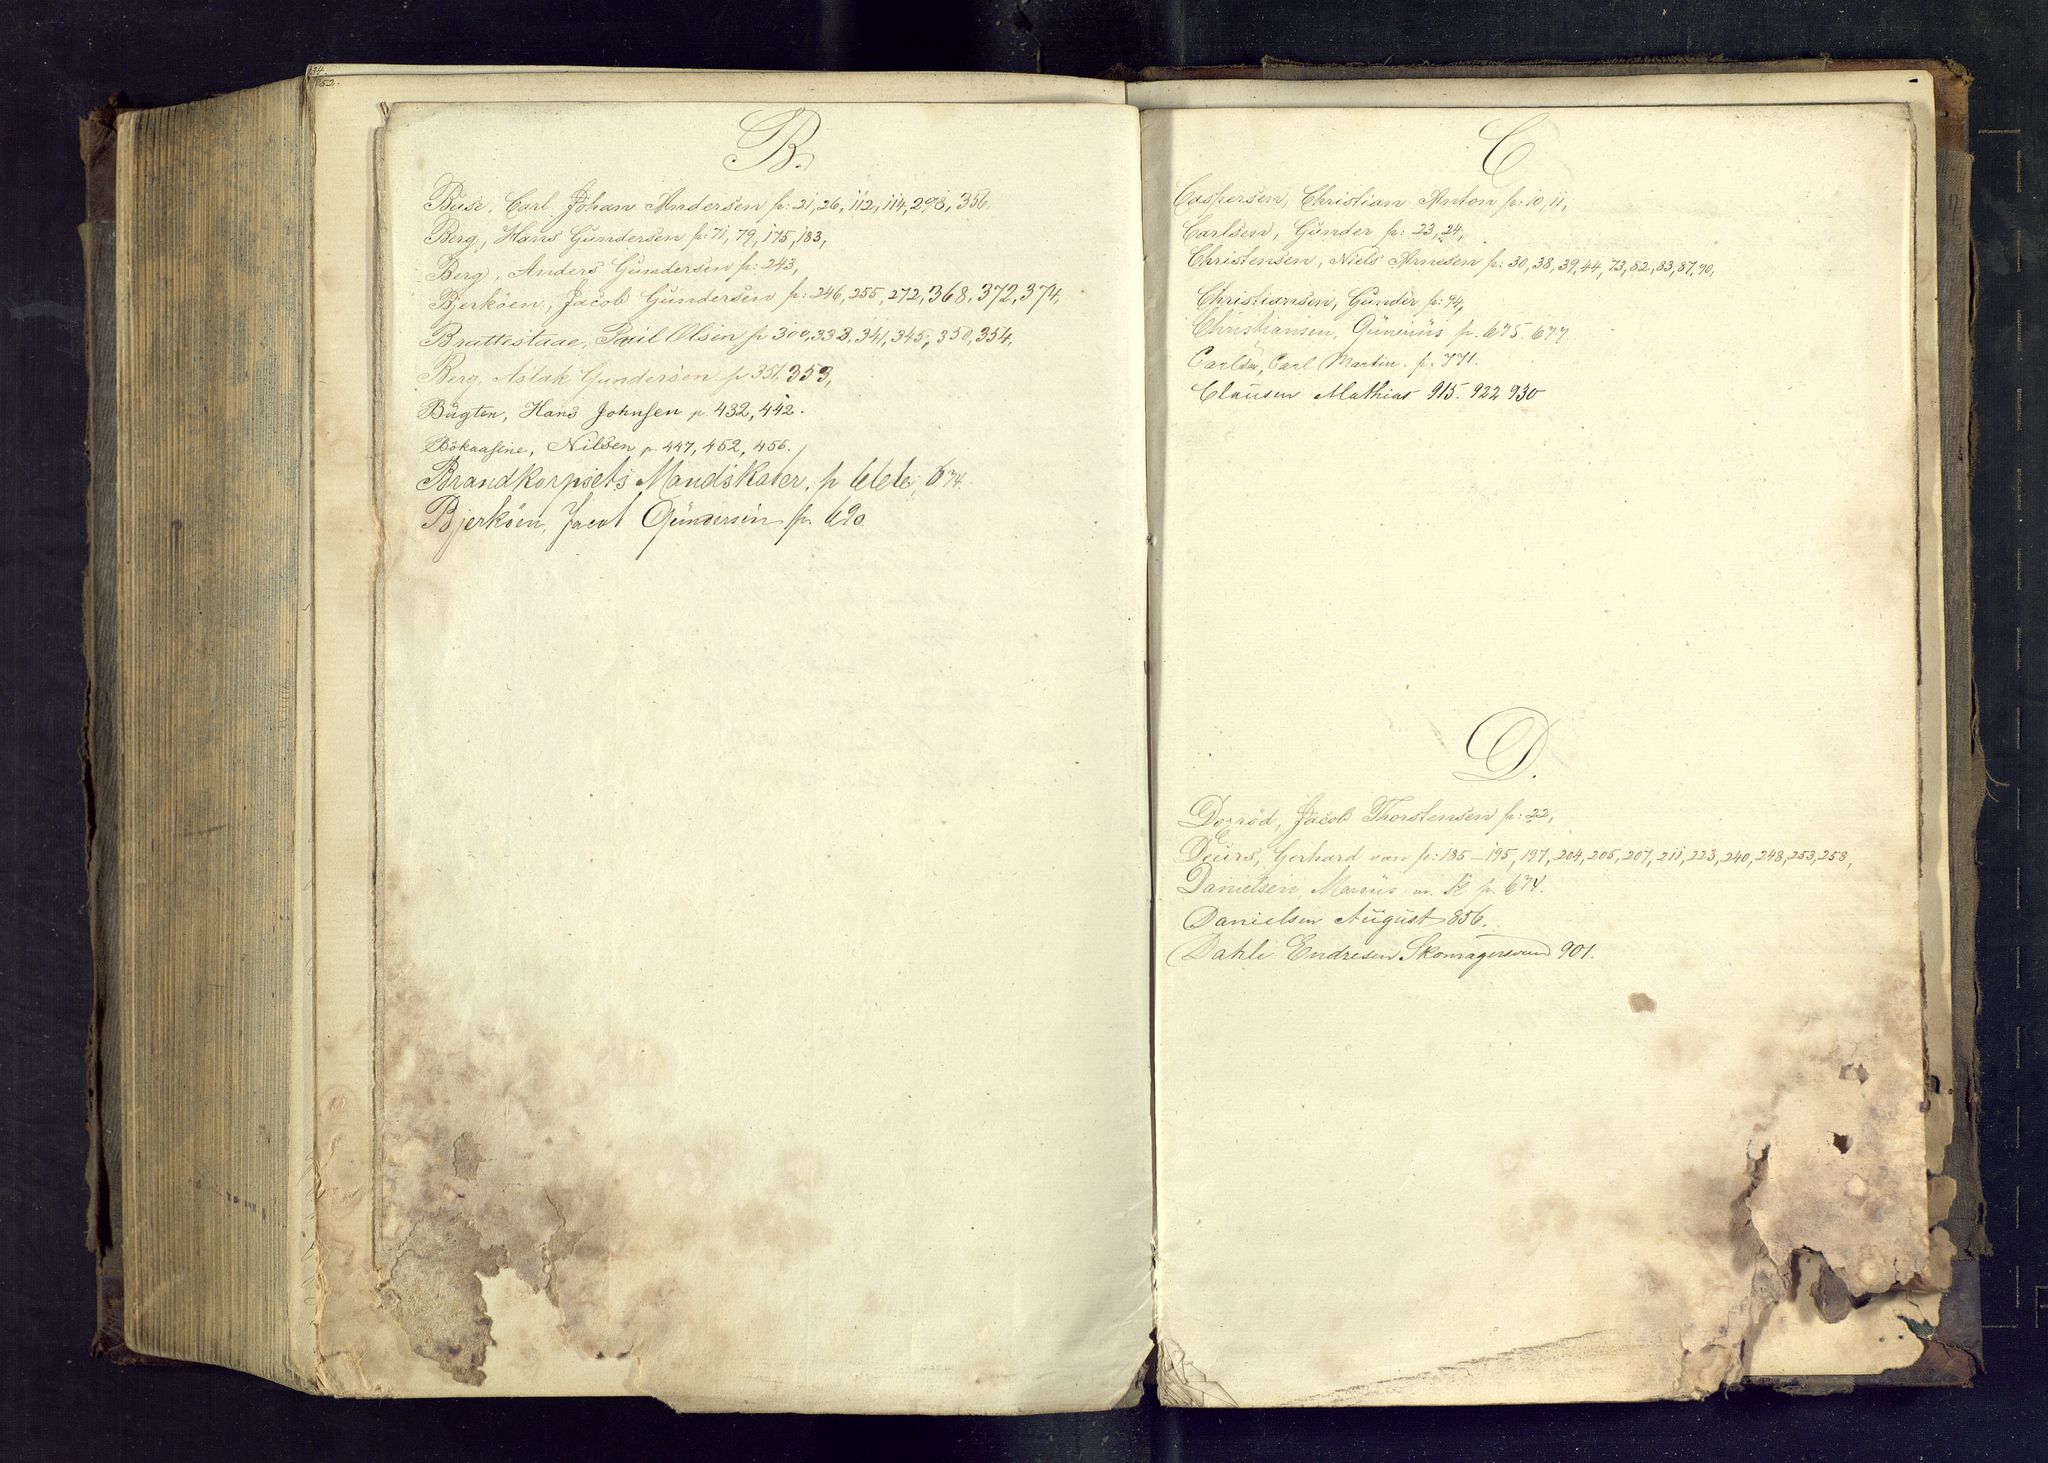 B.
Buse, Carl Johan Andersen p: 21, 26, 112, 114, 298, 356.
Berg, Hans Gundersen p: 71, 79, 175, 183,
Berg, Anders Gundersen p: 243,
Bjerköen, Jacob Gundersen p: 246, 255, 272, 368, 372, 374,
Brattestaae, Poul Olsen p 300, 338, 341, 345, 350, 354,
Berg, Aslak Gundersen p 351, 353,
Bugten, Hans Johnsen p. 432, 442.
Bökaasine, Nilsen p. 447, 452, 456.
Brandkorpsets Mandskaber, p 666, 674.
Bjerköen, Jacob Gündersen p. 690.
C
Caspersen, Christian Anton p: 10, 11,
Carlsen, Gunder p: 23, 24,
Christensen, Niels Arnesen p: 30, 38, 39, 44, 73, 82, 83, 87, 90,
Christiansen, Gunder p: 94,
Christiansen, Günerius p. 675. 677.
Carlsen, Carl Martin. p. 771.
Clausen Mathias 915. 922 930
D.
Dorröd, Jacob Thorstensen p: 22,
Deurs, Gerhard van p: 185-195, 197, 204, 205, 207, 211, 223, 240, 248, 253, 258,
Danielsen Marcüs m. fl. p. 674.
Danielsen August 856.
Dahle Endresen Skomagersvend 901.